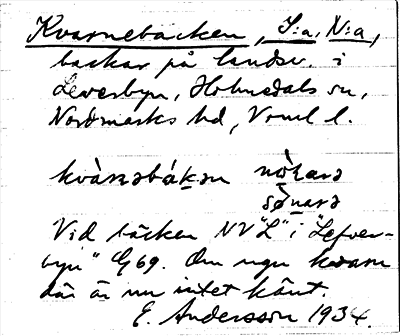 Kvarnebacken, S:a, N:a,
backar på landsv. i
Leverbyn, Holmedals sn,
Nordmarks hd, Vrml l.
kvàrnəbákən nòrarə
sø̀narə
Vid bäcken NV "L" i "Lefver-
byn" G69. Om ngn kvarn
där är nu intet känt.
E. Andersson 1934.